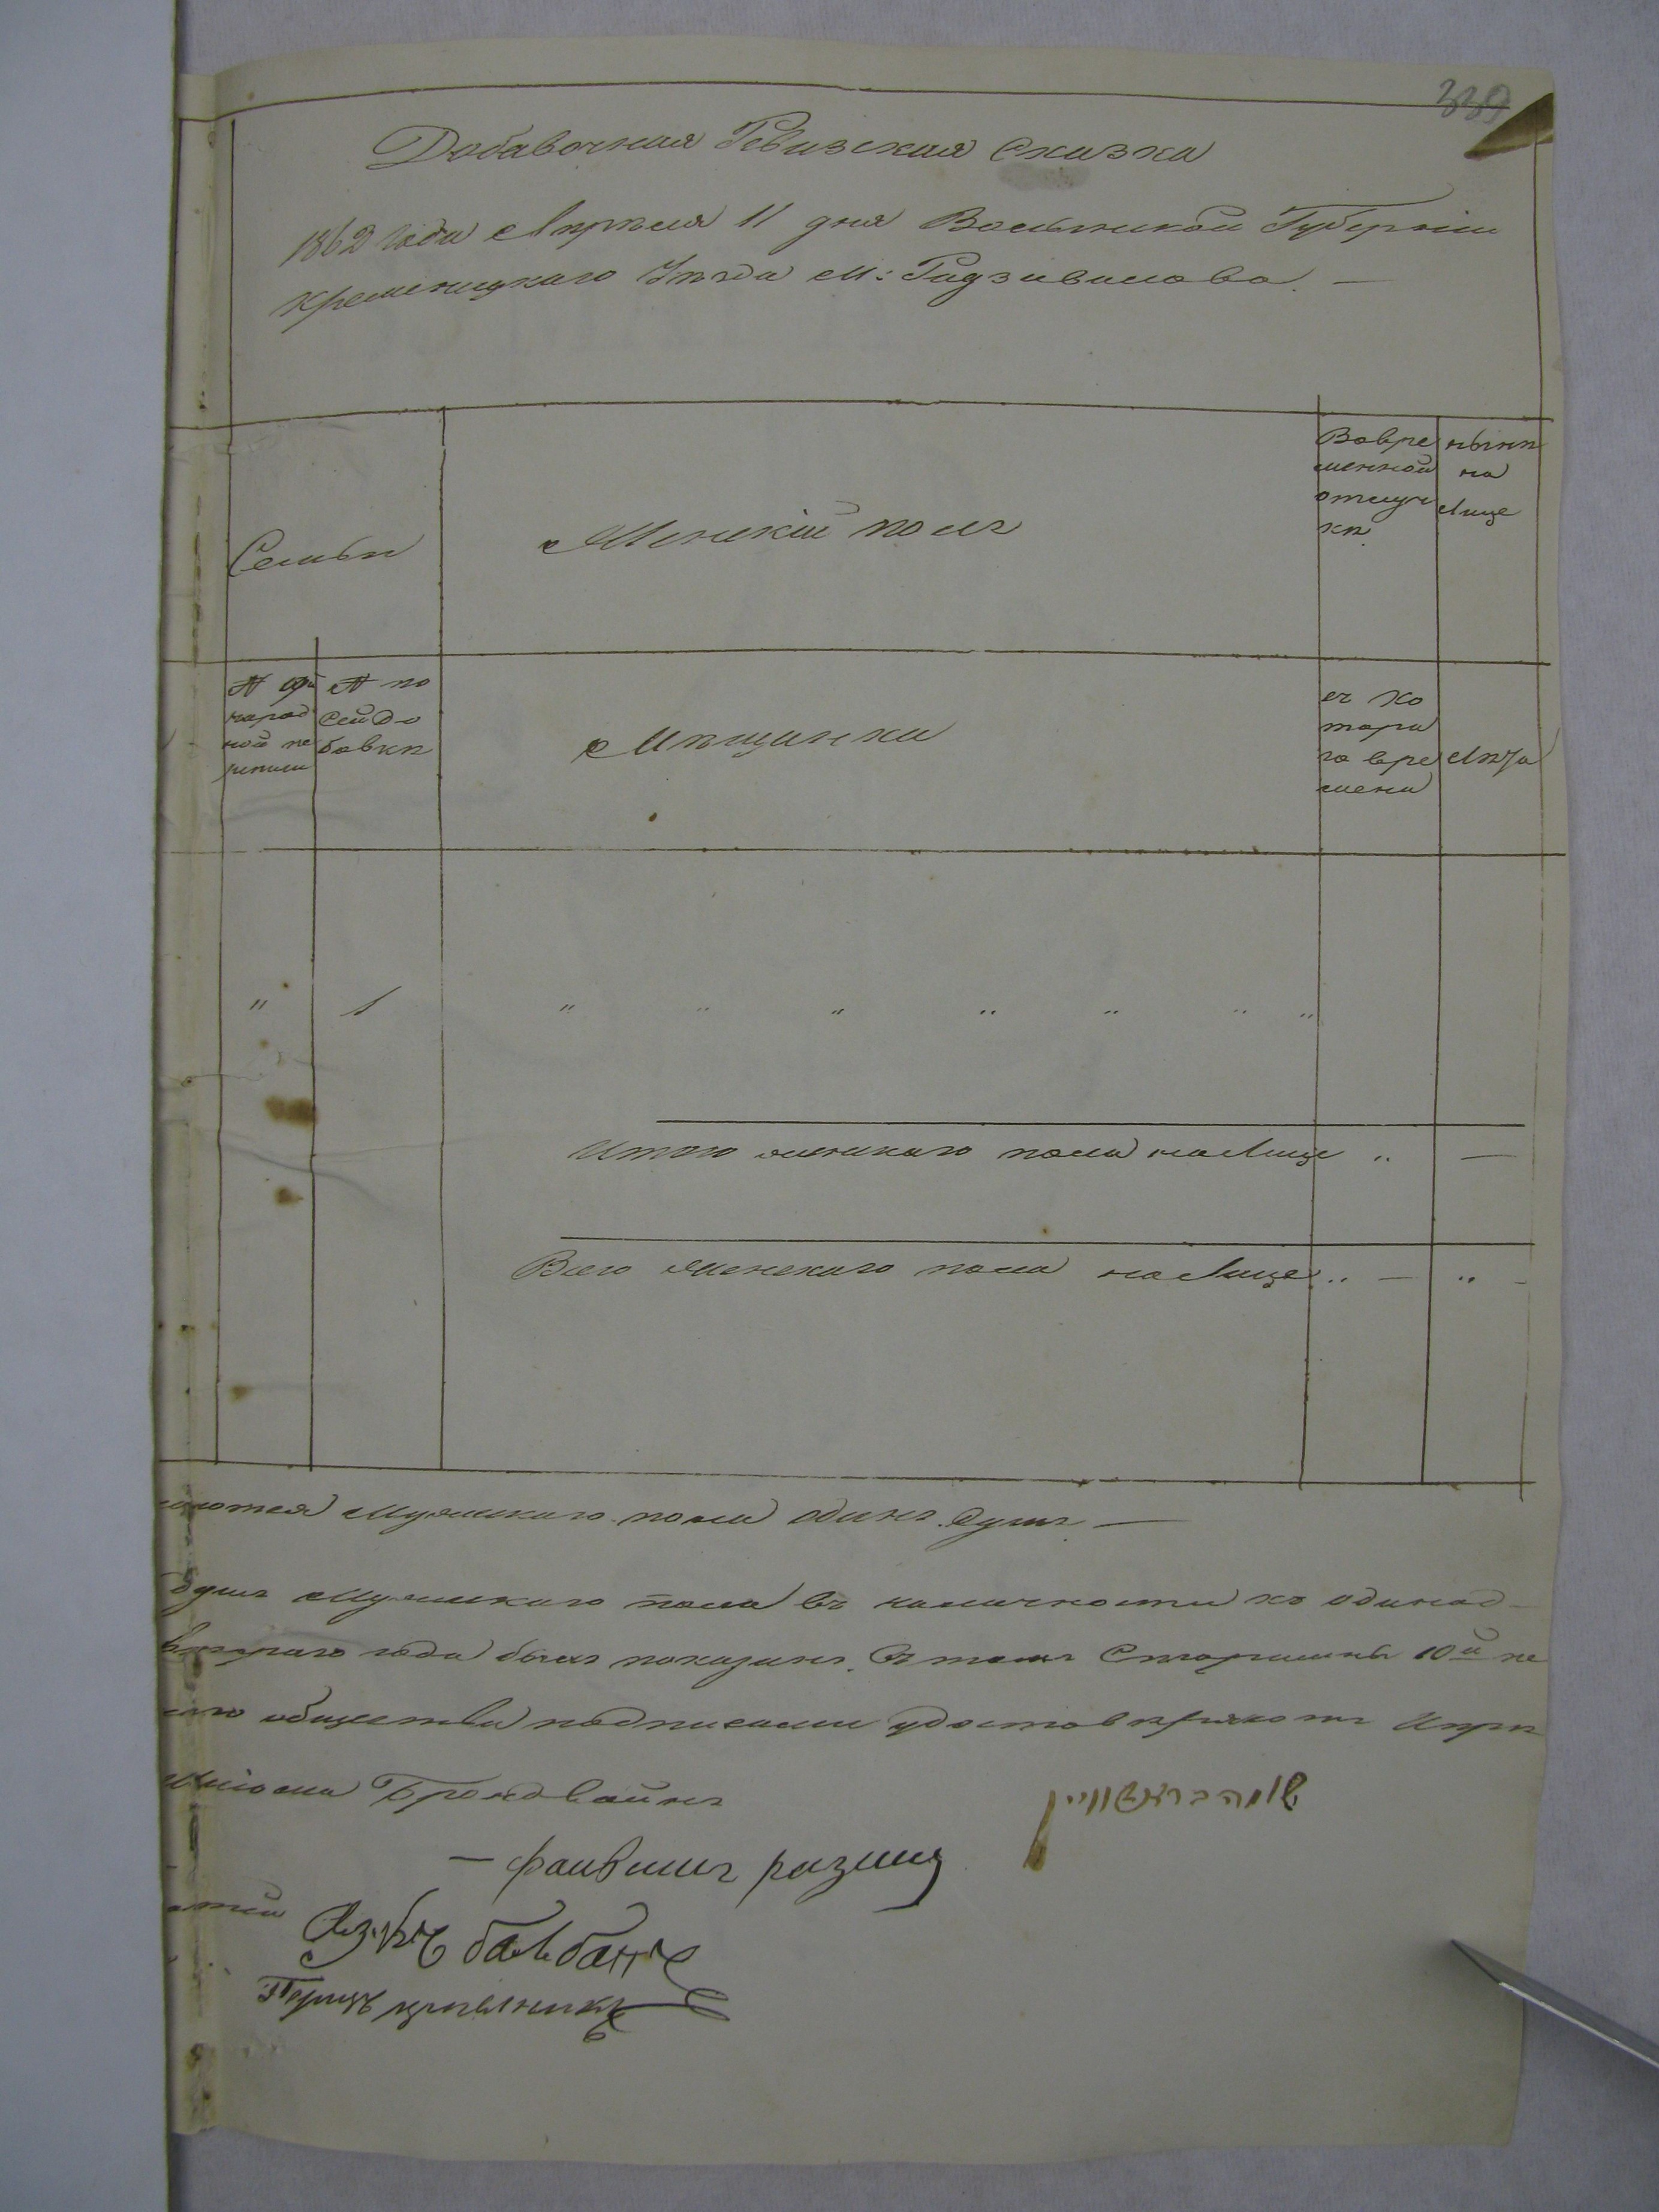 339
Добавочная Ревизская Сказка
1862 года Апреля 11 дня Волынской Губерніи
Кременецкаго Уѣзда М: Радзивилова. —
Семьи
Женскій полъ
Вовре
менной
отлуч
кѣ
нынѣ
на
Лице
№ оче
народ
ной ре
№ по
сей До
бавкѣ
Мѣщанка
съ ко
тора
го вре
мени
Лѣта
" 1 " " " " " " "
Итого женскаго пола на Лице " —
Всего женскаго пола на Лице " — " —
Мужескаго пола одинъ душъ —
душъ Мужескаго пола въ наличности по одинад-
втораго года былъ показанъ. Въ томъ Старшины 10й ре
общества подписами удостовѣряютъ
Шліома Брондвайнъ
שלמה בראנדוויין
— файвишъ
балбанъ